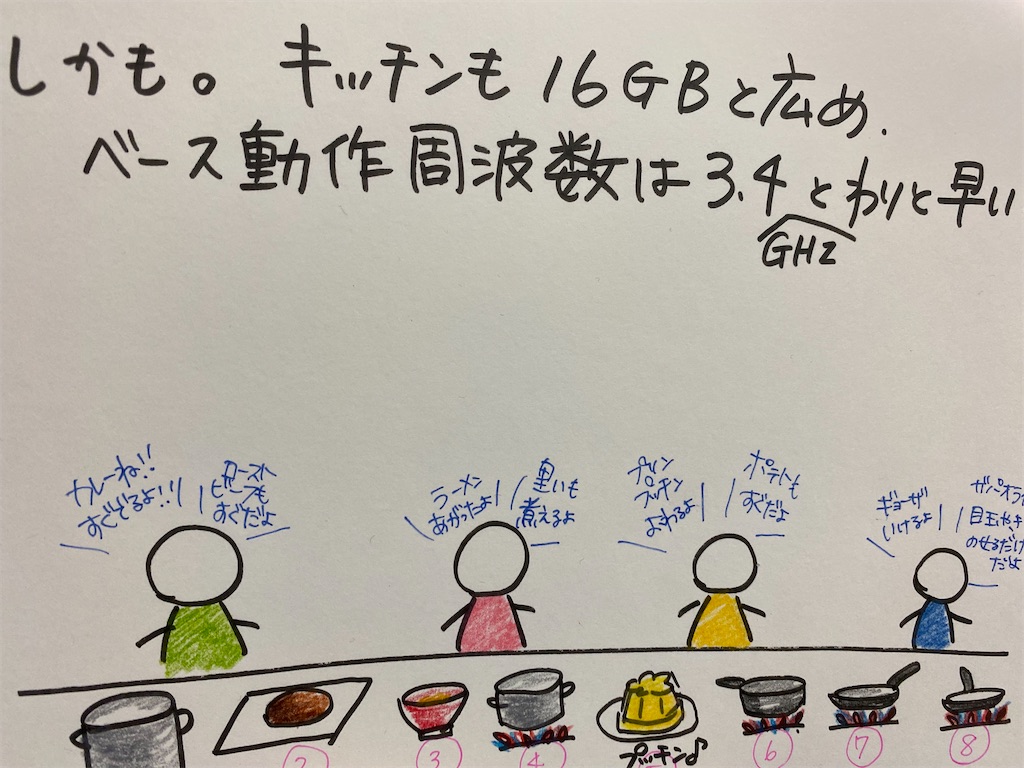 しかも。 キッチンも 16GBと広め.
ベース動作周波数は3.4とわりと早い
GHz
カレーね!!
すぐでるよ!!
ロースト
ビーフも
すぐだよ
ラーメン
あがったよ
黒いも
煮えるよ
プリン
プッチン
よわるよ
ポテトも
すぐだよ
ギョーザ
いけるよ
ガパオライ
目玉やき
のせるだけ
だよ
②
③
④
プッチン♪
⑥
⑦
⑧